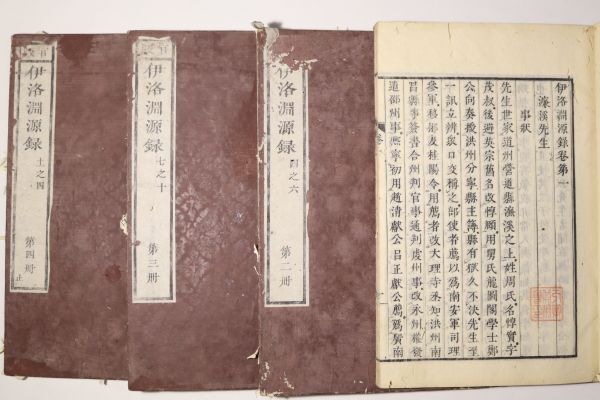 伊洛淵源錄卷第一
濂溪先生
事狀
先生世家道州營道縣濂溪之上姓周氏名惇實字
茂叔後避英宗舊名改惇頤用舅氏龍圖閣學士鄭
公向奏授洪州分寧縣主簿縣有獄久不決先生至
一訊立辨衆口交稱之部使者薦以爲南安軍司理
參軍移郴及桂陽令用薦者改大理寺丞知洪州南
昌縣事簽書合州判官事通判虔州事改永州權發
遣邵州事熙寧初用趙淸獻公呂正獻公薦爲廣南
伊洛淵源錄 四之六
第二冊
伊洛淵源錄 七之十
第三冊
伊洛淵源錄 十一之四
第四冊 止